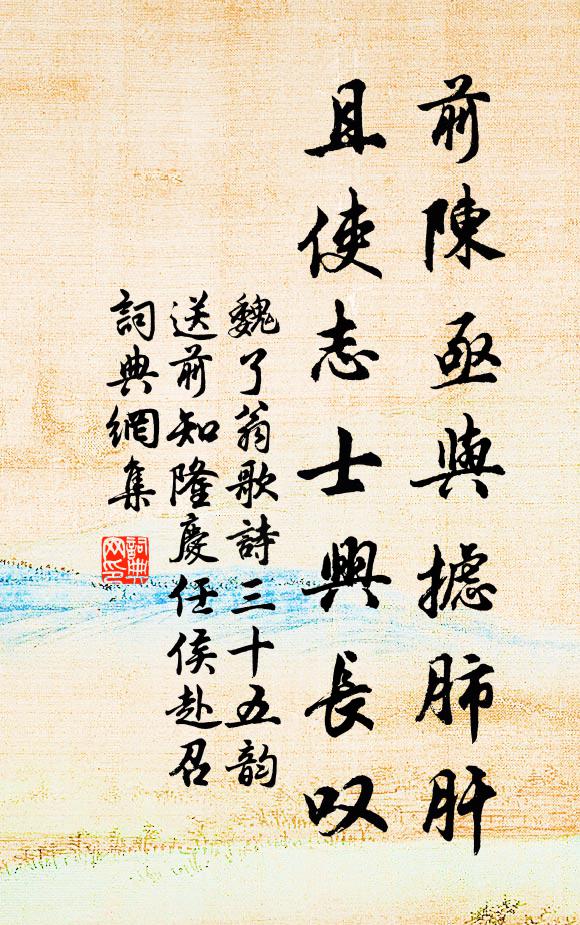 前陳亟與攄肺肝
且使志士興長叹
魏了翁歌詩三十五韵
送前知隆慶任侯赴召
詞典網集
詞典网印